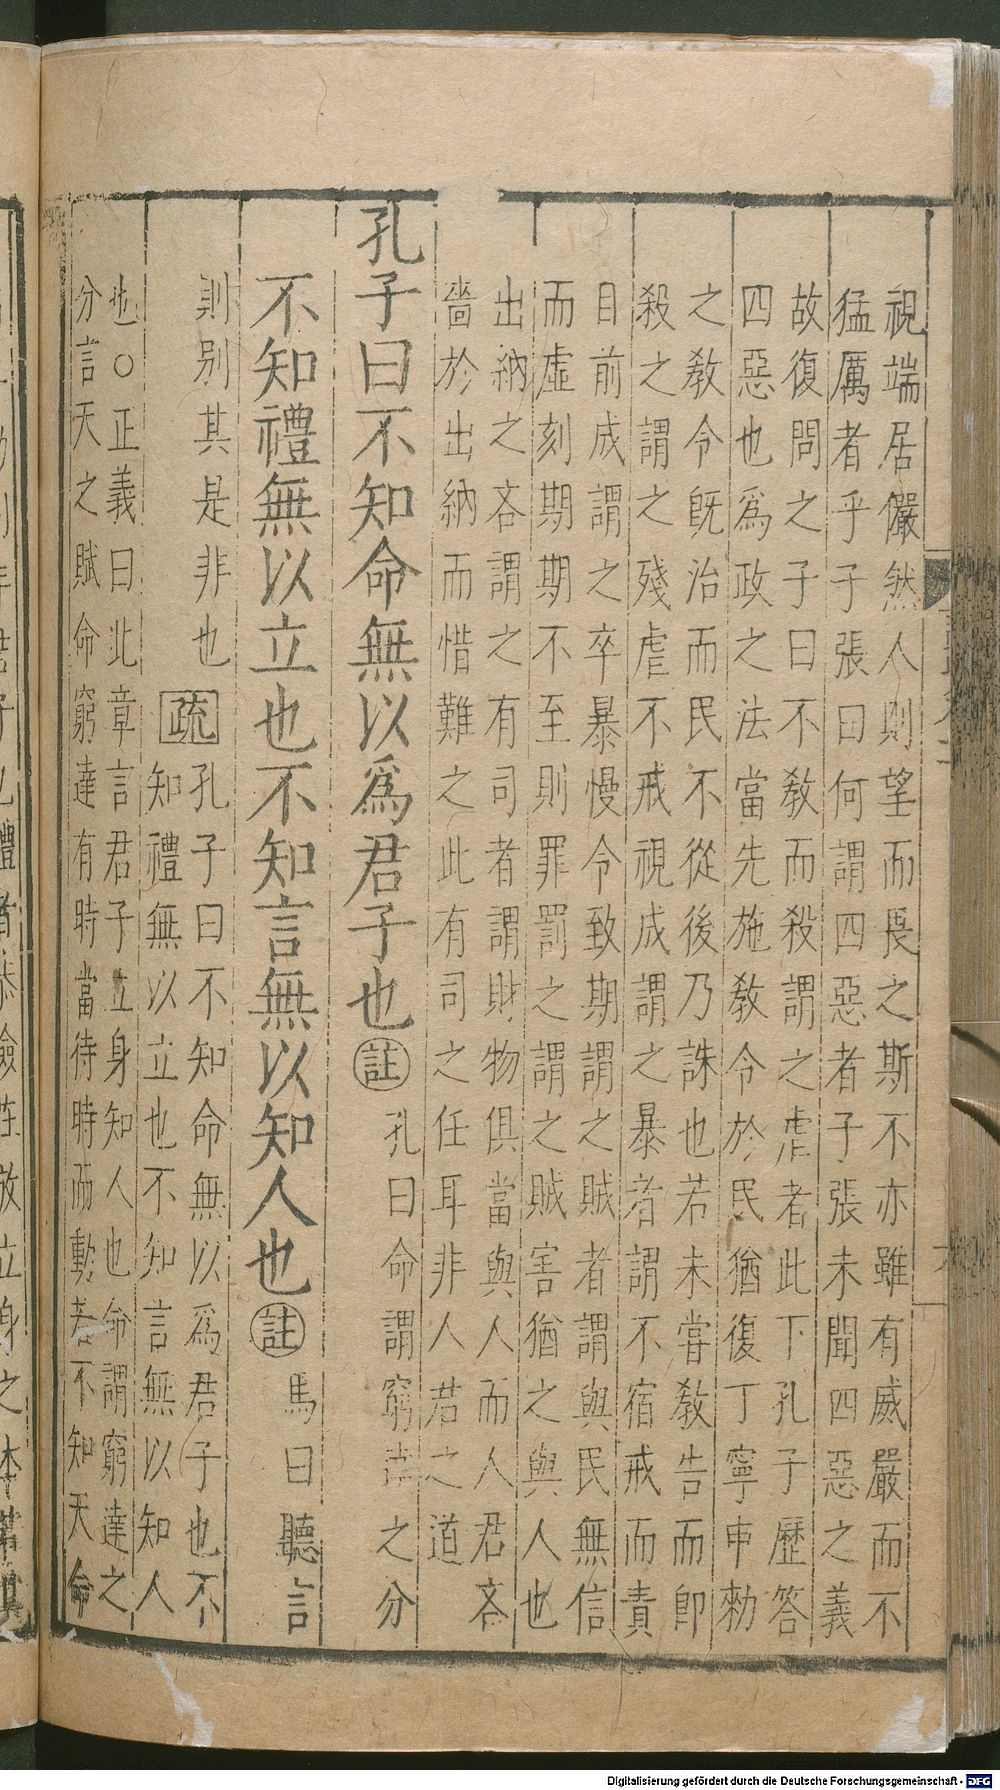 視端居儼然人則望而畏之斯不亦雖有威嚴而不
猛厲者乎子張曰何謂四惡者子張未聞四惡之義
故復問之子曰不敎而殺謂之虐者此下孔子歷答
四惡也爲政之法當先施敎令於民猶復丁寧申勑
之敎令旣治而民不從後乃誅也若未嘗敎告而即
殺之謂之殘虐不戒視成謂之暴者謂不宿戒而責
目前成謂之卒暴慢令致期謂之賊者謂與民無信
而虛刻期期不至則罪罰之謂之賊害猶之與人也
出納之吝謂之有司者謂財物俱當與人而人君吝
嗇於出納而惜難之此有司之任耳非人君之道
孔子曰不知命無以爲君子也 註 孔曰命謂窮達之分
不知禮無以立也不知言無以知人也 註 馬曰聽言
則别其是非也 疏 孔子曰不知命無以爲君子也不
知禮無以立也不知言無以知人
也○正義曰此章言君子立身知人也命謂窮達之
分言天之賦命窮達有時當待時而動若不知天命
Digitalisierung gefördert durch die Deutsche Forschungsgemeinschaft - DFG